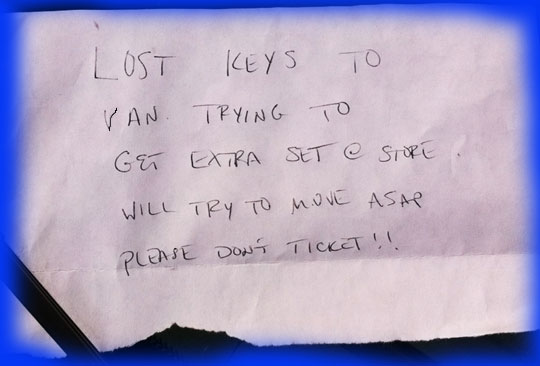 LOST KEYS TO
VAN. TRYING TO
GET EXTRA SET @ STORE.
WILL TRY TO MOVE ASAP
PLEASE DON'T TICKET!!